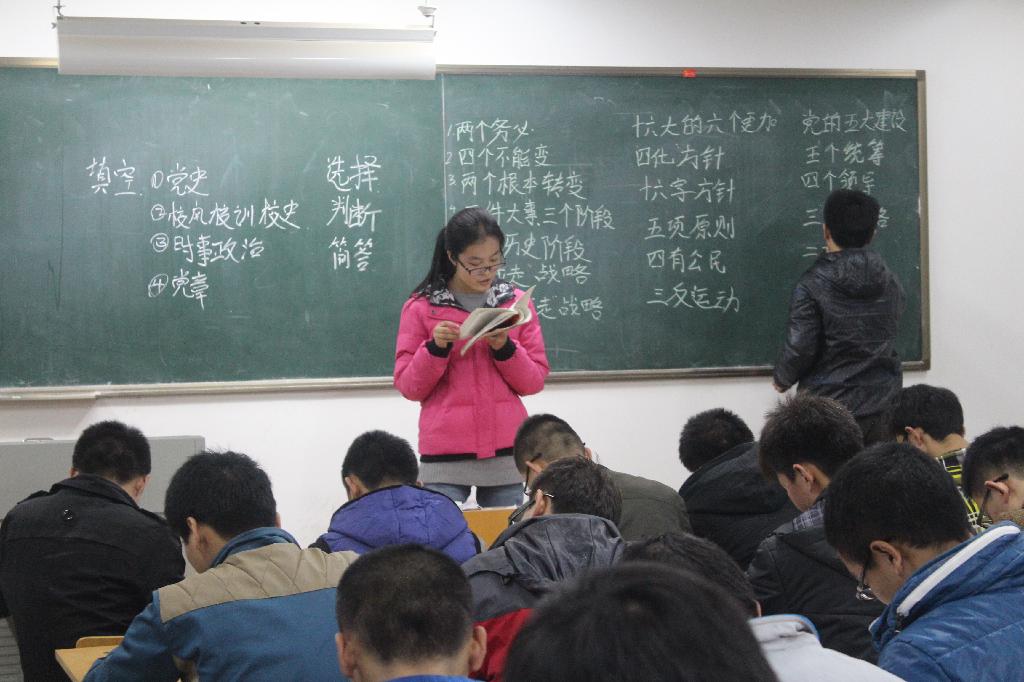 填空 ①党史
②校风校训校史
③时事政治
④党章
选择
判断
简答
1.两个务必
2四个不能变
3两个根本转变
件大事三个阶段
历史阶段
走"战略
走"战略
十六大的六个更加
四化"方针
十六字方针
五项原则
四有公民
三反运动
党的五大建设
五个统筹
四个领导
三